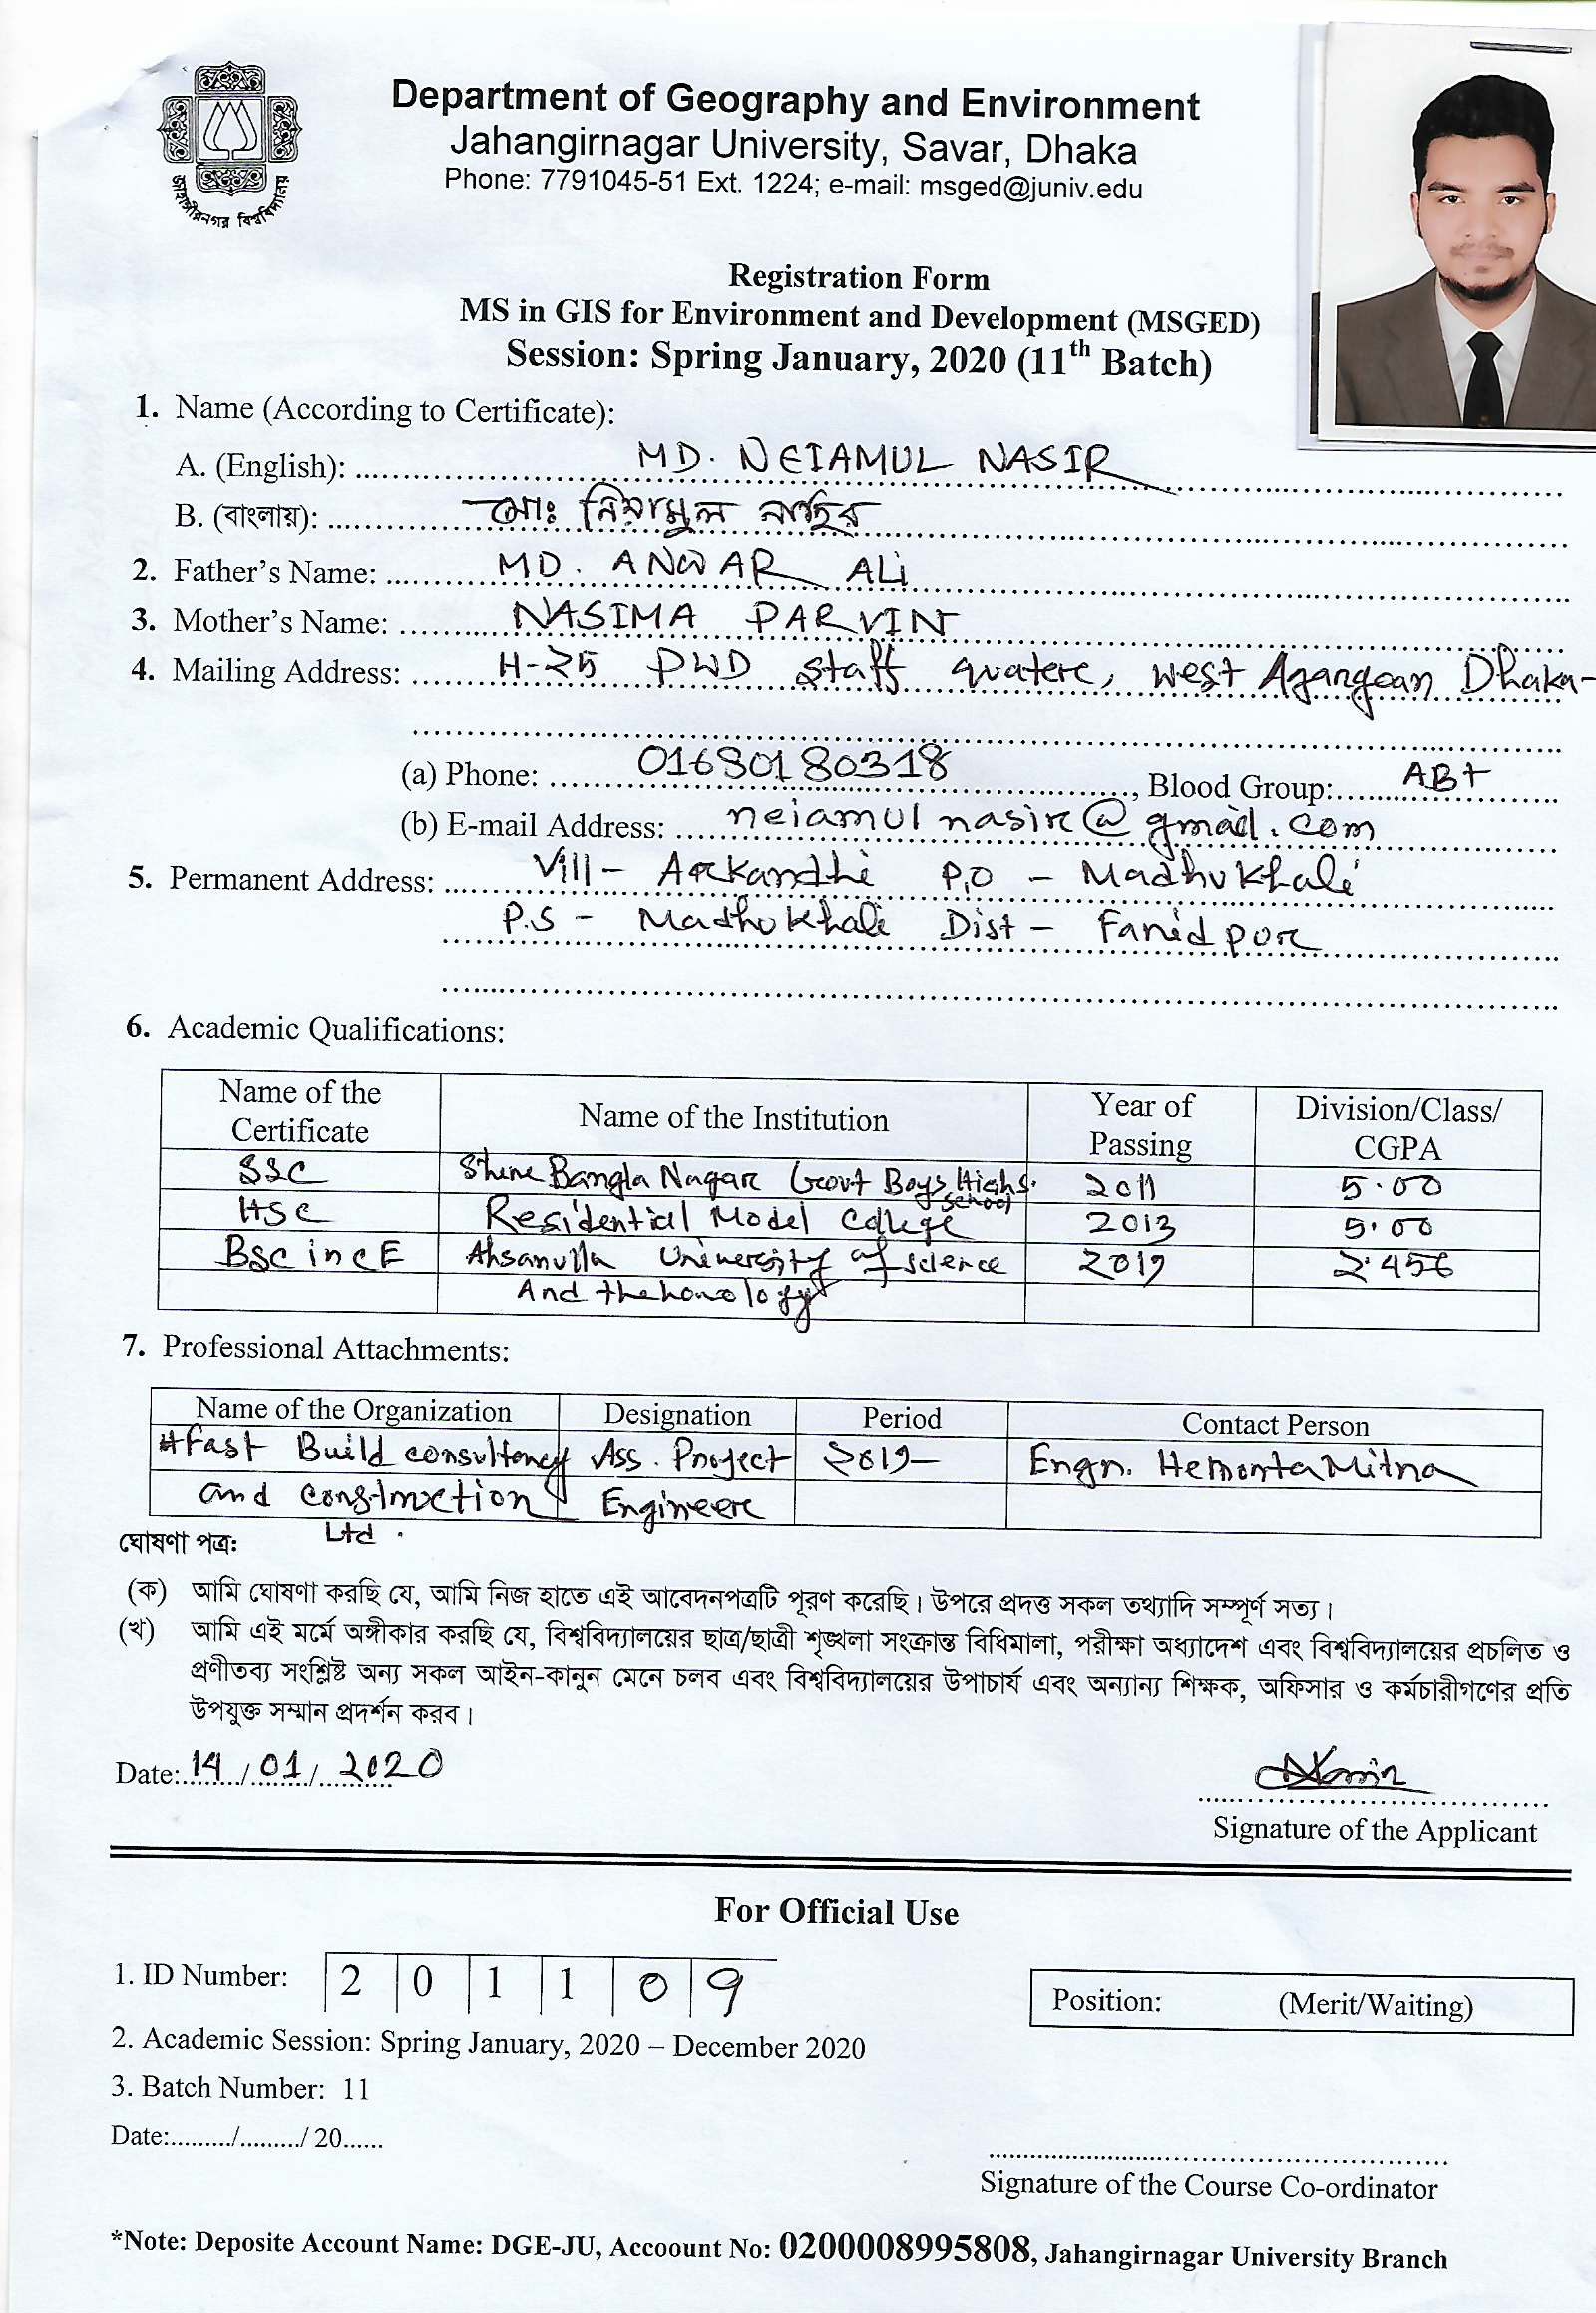 Department of Geography and Environment
Jahangirnagar University, Savar, Dhaka
Phone: 7791045-51 Ext. 1224; e-mail: msged@juniv.edu
জাহাঙ্গীরনগর বিশ্ববিদ্যালয়
Registration Form
MS in GIS for Environment and Development (MSGED)
Session: Spring January, 2020 (11th Batch)
1. Name (According to Certificate):
A. (English): MD. NEIAMUL NASIR
B. (বাংলায়): মোঃ নিয়ামুল নাছির
2. Father's Name: MD. ANWAR ALi
3. Mother's Name: NASIMA PARVIN
4. Mailing Address: H-25 PWD staff quatere, west Agargoan Dhaka-
(a) Phone: 01680180318, Blood Group: AB+
(b) E-mail Address: neiamulnasir@gmail.com
5. Permanent Address: Vill- Arkandhi P.O - Madhukhali
P.S - Madhukhali Dist - Faridpur
6. Academic Qualifications:
Name of the Certificate Name of the Institution Year of Passing Division/Class/ CGPA
SSC Shere Bangla Nagar Govt Boys High School 2011 5.00
HSC Residential Model College 2013 5.00
BSc in CE Ahsanulla University of science 2019 2.456
And
7. Professional Attachments:
Name of the Organization Designation Period Contact Person
#Fast Build consultancy Ass. Project 2019- Engr. Hemonta Mitra
and construction Engineer
Ltd.
ঘোষণা পত্র:
(ক) আমি ঘোষণা করছি যে, আমি নিজ হাতে এই আবেদনপত্রটি পূরণ করেছি। উপরে প্রদত্ত সকল তথ্যাদি সম্পূর্ণ সত্য।
(খ) আমি এই মর্মে অঙ্গীকার করছি যে, বিশ্ববিদ্যালয়ের ছাত্র/ছাত্রী শৃঙ্খলা সংক্রান্ত বিধিমালা, পরীক্ষা অধ্যাদেশ এবং বিশ্ববিদ্যালয়ের প্রচলিত ও
প্রণীতব্য সংশ্লিষ্ট অন্য সকল আইন-কানুন মেনে চলব এবং বিশ্ববিদ্যালয়ের উপাচার্য এবং অন্যান্য শিক্ষক, অফিসার ও কর্মচারীগণের প্রতি
উপযুক্ত সম্মান প্রদর্শন করব।
Date: 14/01/2020
Signature of the Applicant
For Official Use
1. ID Number: 2 0 1 1 0 9
Position: (Merit/Waiting)
2. Academic Session: Spring January, 2020 – December 2020
3. Batch Number: 11
Date:........./........./ 20......
Signature of the Course Co-ordinator
*Note: Deposite Account Name: DGE-JU, Accoount No: 0200008995808, Jahangirnagar University Branch